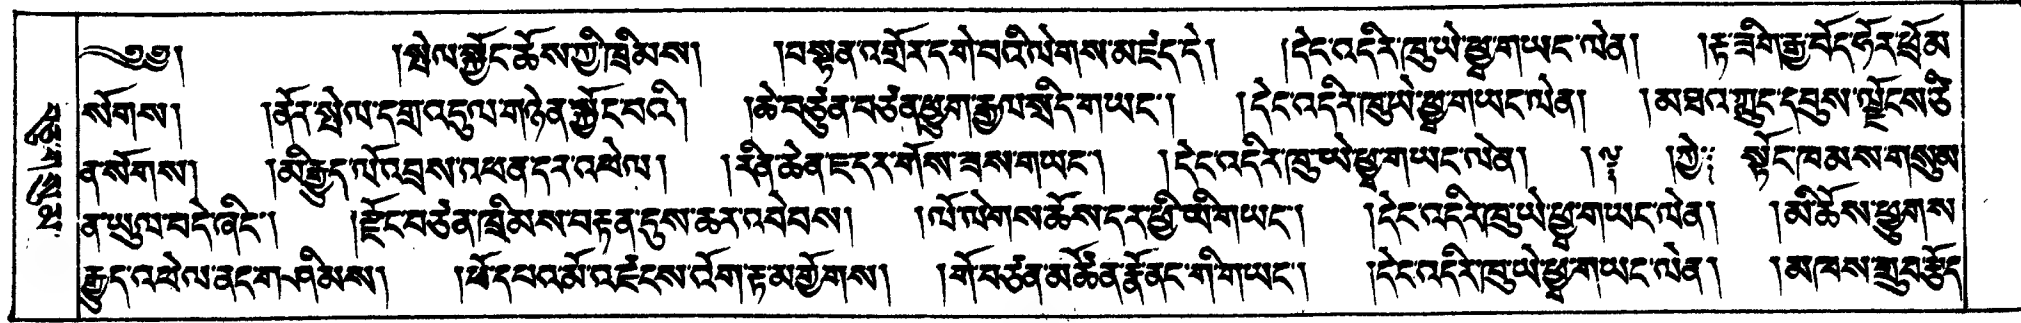 ༄༅། །སྤེལ་སྐྱོང་ཆོས་ཀྱི་ཁྲིམས། །བསྟན་འགྲོར་དགེ་བའི་ལེགས་མཛད་དེ། །དེང་འདིར་ཁུ་ཡེ་ཕྱྭ་གཡང་ལེན། །རྟ་ཟིག་རྒྱ་བོད་ཧོར་ཕྲོམ
སོགས། །ནོར་སྤེལ་དགྲ་འདུལ་གཉེན་སྐྱོང་བའི། །ཆེ་བཙུན་བཙན་ཕྱུག་རྒྱལ་སྲིད་གཡང་། །དེང་འདིར་ཁུ་ཡེ་ཕྱྭ་གཡང་ལེན། །མཐའ་ཀླུང་དབུས་ལྗོངས་ཙི
ན་སོགས། །མི་རྒྱུད་ལོ་འབྲས་འཕན་དར་འཕེལ། །རིན་ཆེན་ཇ་དར་གོས་ཟས་གཡང་། །དེང་འདིར་ཁུ་ཡེ་ཕྱྭ་གཡང་ལེན། །ཀྱེ༔ སྟོང་ཁམས་གསུམ
ན་ཡུལ་བདེ་ཞིང་། །རྫོང་བཙན་ཁྲིམས་བརྟན་དུས་ཆར་འབེབས། །ལོ་ལེགས་ཆོས་དར་ཕྱི་ཡི་གཡང་། །དེང་འདིར་ཁུ་ཡེ་ཕྱྭ་གཡང་ལེན། །མི་ཆོས་ཕྱུགས
རྒྱུད་འཕེལ་ནད་གཤིམས། །ཕོ་དཔའ་མོ་འཛངས་འོག་རྟ་མགྱོགས། །གོ་བཙན་མཚོན་རྣོ་ནང་གི་གཡང་། །དེང་འདིར་ཁུ་ཡེ་ཕྱྭ་གཡང་ལེན། །མཁས་གྲུབ་རྩོད